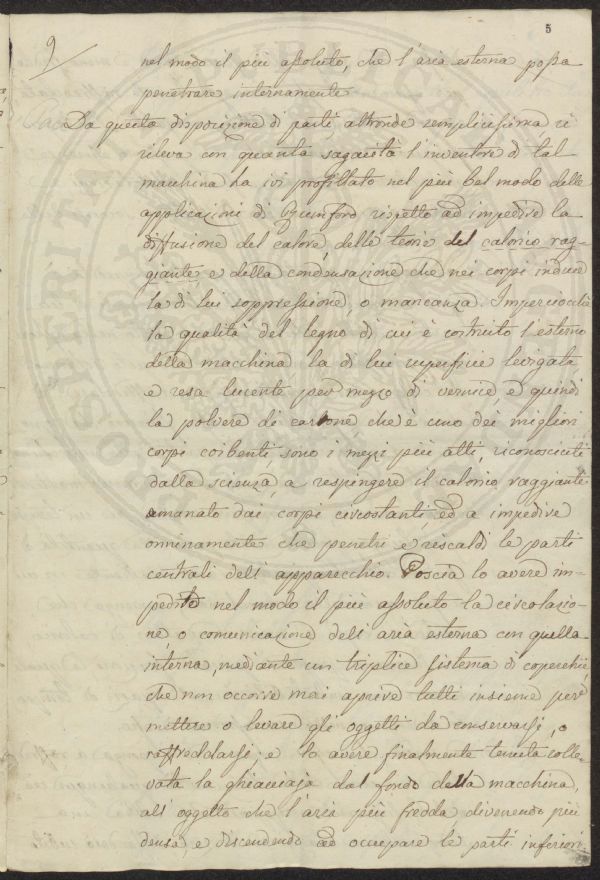 9
5
nel modo il più assoluto, che l'aria esterna possa
penetrare internamente
Da questa disposizione di parti altronde semplicissima, si
rileva con quanta sagacità l'inventore di tal
macchina ha ivi profittato nel più bel modo delle
applicazioni di Rumford rispetto ad impedire la
diffusione del calore, delle teorie del calorico rag-
giante, e della condensazione che nei corpi induce
la di lui soppressione, o mancanza. Imperciocchè
la qualità del legno di cui è costruito l'esterno
della macchina la di lui superficie levigata,
e resa lucente per mezzo di vernice, e quindi
la polvere di carbone che è uno dei migliori
corpi coibenti, sono i mezzi più atti, riconosciuti
dalla scienza, a respingere il calorico raggiante
emanato dai corpi circostanti, ed a impedire
onninamente che penetri e riscaldi le parti
centrali dell'apparecchio. Poscia lo avere im-
pedito nel modo il più assoluto la circolazio-
ne, o comunicazione dell'aria esterna con quella
interna, mediante un triplice sistema di coperchi,
che non occorre mai aprire tutti insieme per
mettere o levare gli oggetti da conservarsi, o
raffreddarsi; e lo avere finalmente tenuta solle-
vata la ghiacciaja dal fondo della macchina,
all'oggetto che l'aria più fredda divenendo più
densa, e discendendo ad occupare le parti inferiori